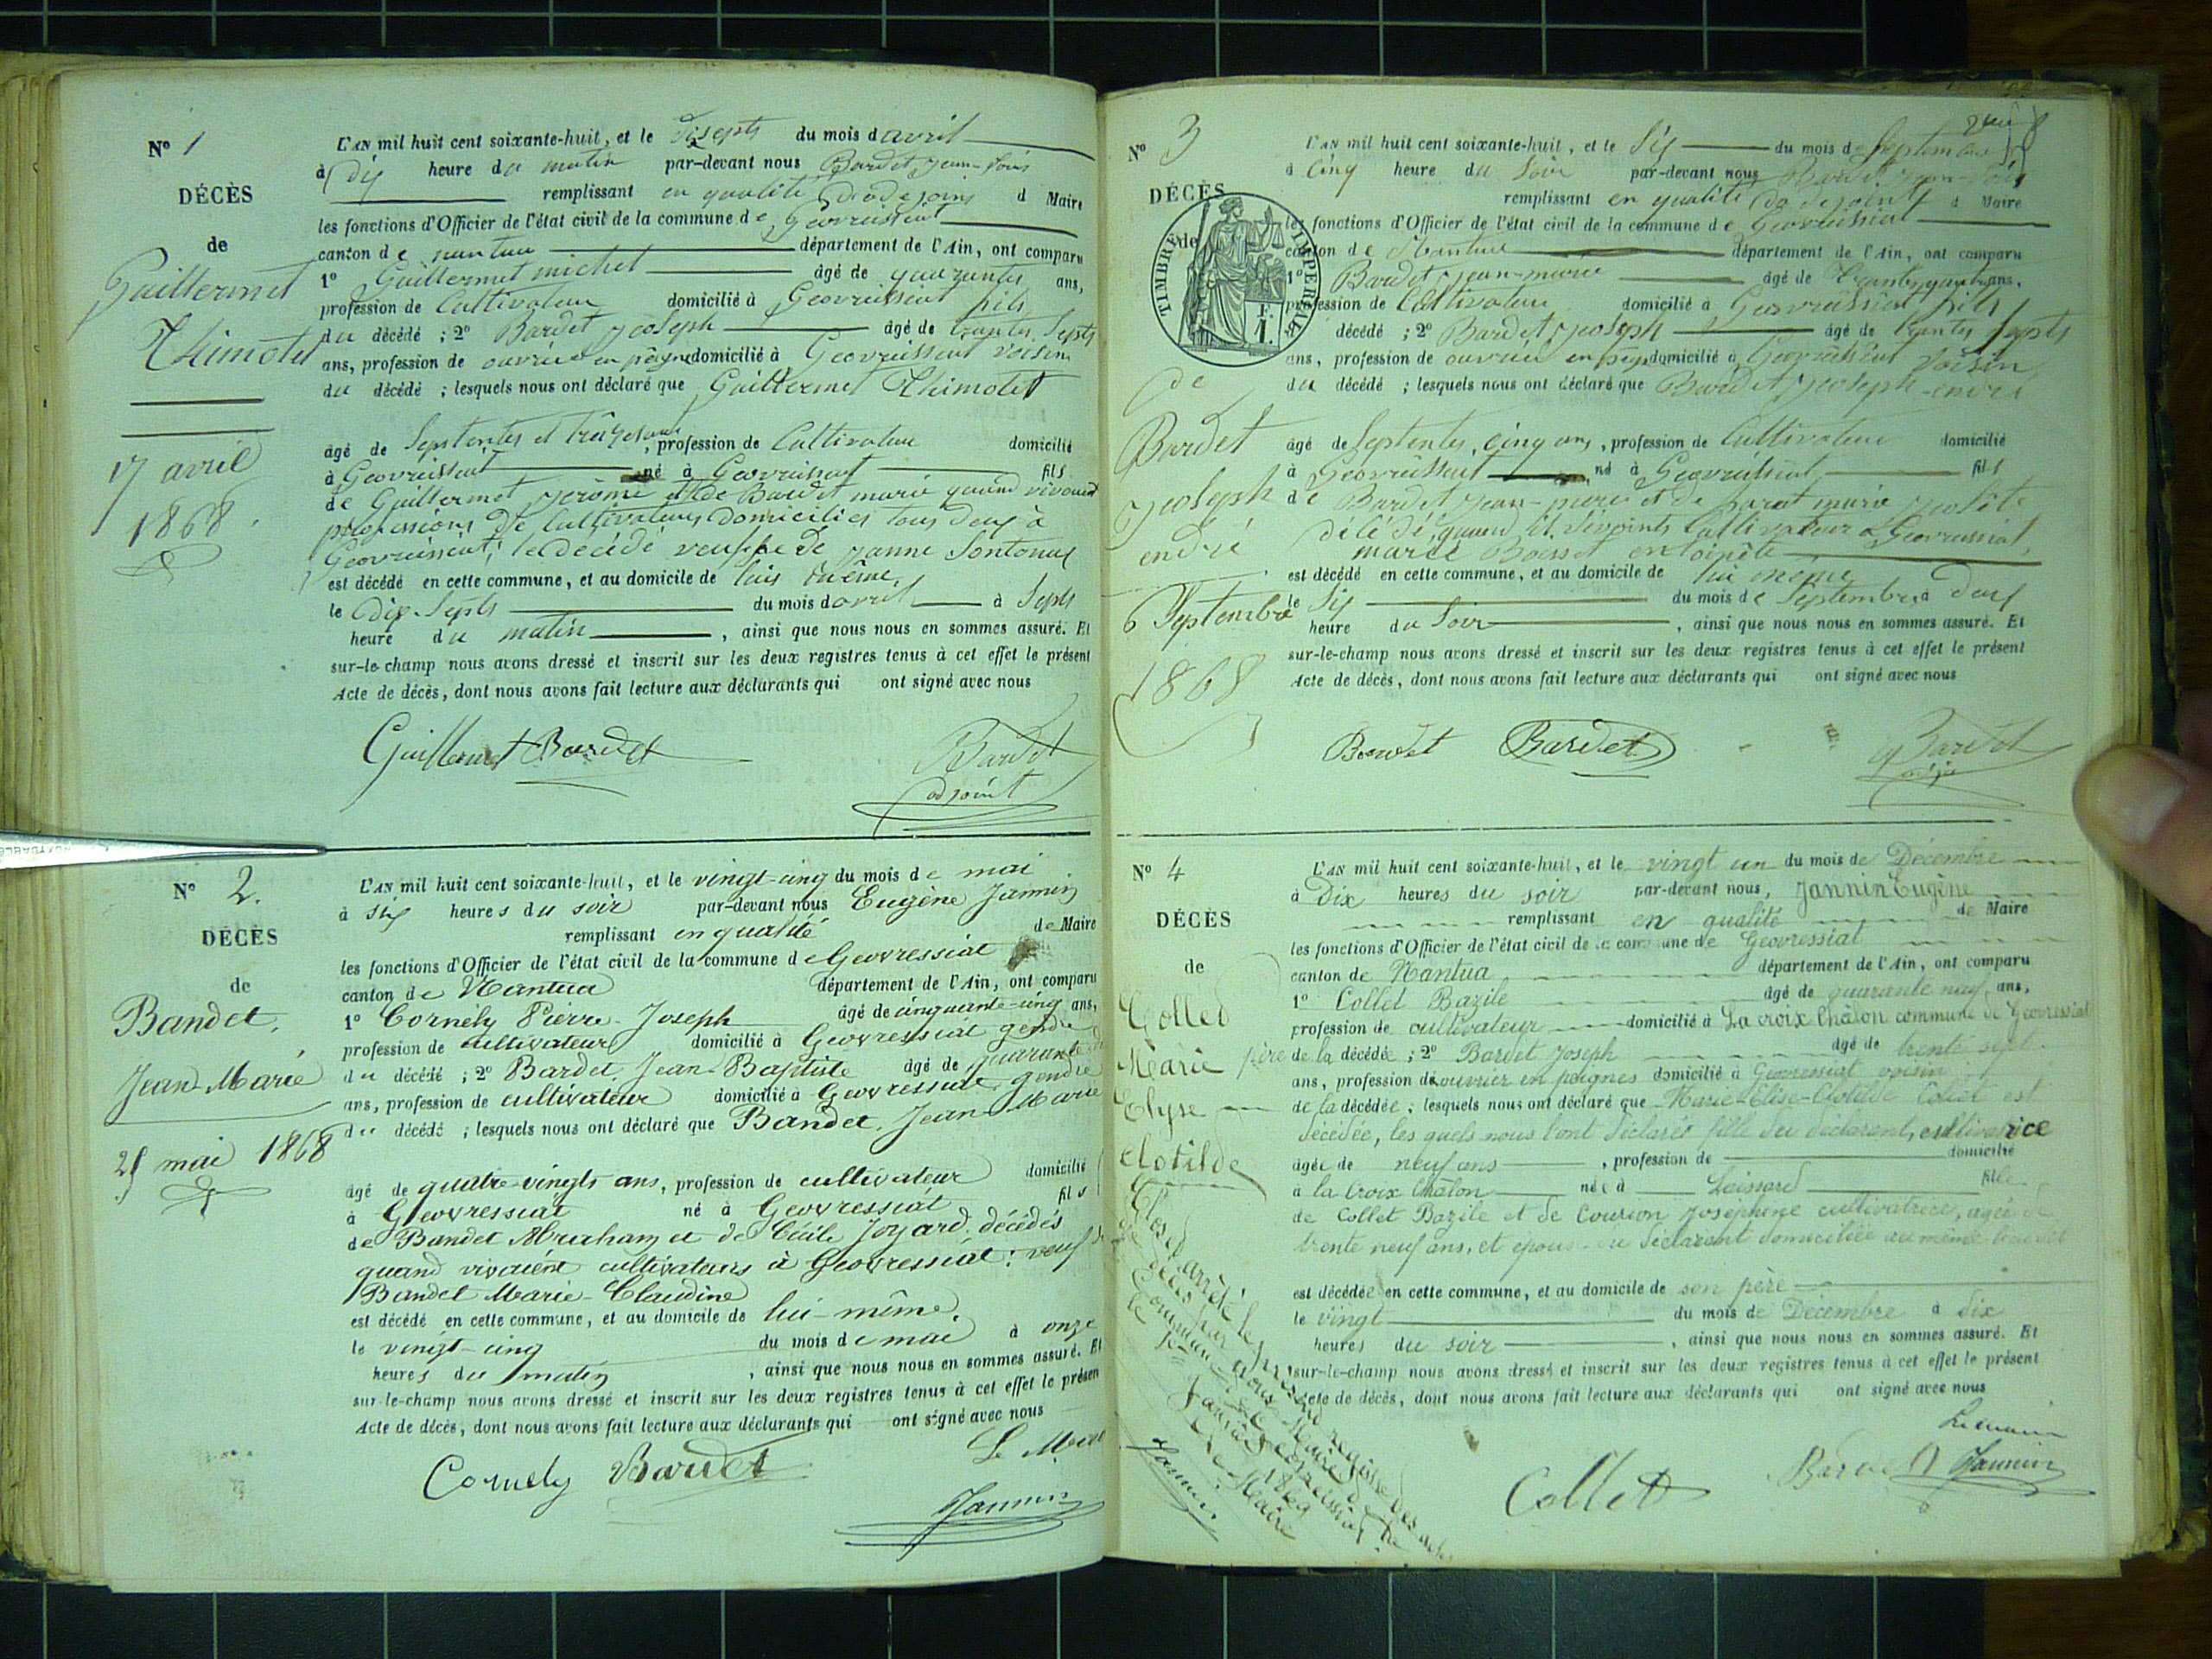 Nº 1
DÉCÈS
de
Guillermet
Thimotet
17 avril
1868.
L'AN mil huit cent soixante-huit, et le disepts du mois d avril
à dix heure du matin par-devant nous Bardet jean-louis
remplissant en qualité d'adejoins d Maire
les fonctions d'Officier de l'état civil de la commune de Geovreissiat
canton de nantua département de l'Ain, ont comparu
1º Guillermet michel âgé de quarantes ans,
profession de Cultivateur domicilié à Geovreissiat fils
du décédé ; 2º Bardet joseph âgé de trantes septs
ans, profession de ouvrier en peigne domicilié à Geovreissiat voisin
du décédé ; lesquels nous ont déclaré que Guillermet Thimotet
âgé de Septentes et trêze ans, profession de Cultivateur domicilié
à Geovreissiat né à Geovreissiat fils
de Guillermet jerôme et de Bardet marie quand vivoient
professions de Cultivateurs domiciliés tous deux à
Geovreissiat, le décédé veuffe de janne
est décédé en cette commune, et au domicile de luis même,
le dix-septs du mois d avril à Septs
heure du matin , ainsi que nous nous en sommes assuré. Et
sur-le-champ nous avons dressé et inscrit sur les deux registres tenus à cet effet le présent
Acte de décès, dont nous avons fait lecture aux déclarants qui ont signé avec nous
Guillermet Bardet Bardet
adjoint
Nº 2.
DÉCÈS
de
Bandet,
Jean Marie
25 mai 1868
L'AN mil huit cent soixante-huit, et le vingt-cinq du mois de mai
à six heures du soir par-devant nous Eugène Jannin
remplissant en qualité de Maire
les fonctions d'Officier de l'état civil de la commune de Geovressiat
canton de Nantua département de l'Ain, ont comparu
1º Cornely Pierre-Joseph âgé de cinquante-cinq ans,
profession de cultivateur domicilié à Geovressiat gendre
du décédé ; 2º Bardet Jean-Baptiste âgé de quarante
ans, profession de cultivateur domicilié à Geovressiat gendre
du décédé ; lesquels nous ont déclaré que Bandet, Jean Marie
âgé de quatre-vingts ans, profession de cultivateur domicilié
à Geovressiat né à Geovressiat fils
de Bandet Abraham et de Cécile Joyard, décédés
quand vivaient cultivateurs à Geovressiat ; veuf de
Bandet Marie-Claudine
est décédé en cette commune, et au domicile de lui-même,
le vingt-cinq du mois de mai à onze
heures du matin , ainsi que nous nous en sommes assuré. Et
sur-le-champ nous avons dressé et inscrit sur les deux registres tenus à cet effet le présen
Acte de décès, dont nous avons fait lecture aux déclarants qui ont signé avec nous
Cornely Bardet Le Maire
Jannin
Nº 3
DÉCÈS
de
TIMBRE IMPERIAL
F.
1.
de
Bardet
joseph
endré
6 Septembre
1868
L'AN mil huit cent soixante-huit, et le Six du mois de Septembre
à Cinq heure du Soir par-devant nous Bardet jean-louis
remplissant en qualité d'adejoint d Maire
les fonctions d'Officier de l'état civil de la commune de Geovreissiat
canton de Nantua département de l'Ain, ont comparu
1º Bardet jean-marie âgé de ans,
profession de Cultivateur domicilié à Geovreissiat fils
décédé ; 2º Bardet joseph âgé de trantes septs
ans, profession de ouvrier en peigne domicilié à Geovreissiat voisin
du décédé ; lesquels nous ont déclaré que Bardet joseph-endré
âgé de Septentes, cinq ans, profession de Cultivateur domicilié
à Geovreissiat né à Geovreissiat fils
de Bardet jean- et de marie
décédé, quand Cultivateur à Geovreissiat,
marié
est décédé en cette commune, et au domicile de lui même
le Six du mois de Septembre à deux
heure du Soir , ainsi que nous nous en sommes assuré. Et
sur-le-champ nous avons dressé et inscrit sur les deux registres tenus à cet effet le présent
Acte de décès, dont nous avons fait lecture aux déclarants qui ont signé avec nous
Bardet Bardet Bardet
Nº 4
DÉCÈS
de
Collet
Marie
Elyse
Clotilde
L'AN mil huit cent soixante-huit, et le vingt un du mois de Décembre
à Dix heures du soir par-devant nous, Jannin Eugène
remplissant en qualité de Maire
les fonctions d'Officier de l'état civil de la commune de Geovressiat
canton de Nantua département de l'Ain, ont comparu
1º Collet Bazile âgé de quarante neuf ans,
profession de cultivateur domicilié à La croix Châlon commune de Geovressiat
père de la décédée ; 2º Bardet Joseph âgé de trente sept
ans, profession d'ouvrier en peignes domicilié à Geovressiat voisin
de la décédée ; lesquels nous ont déclaré que Marie-Elise-Clotilde Collet est
décédée, les quels nous l'ont déclarée fille du déclarant, cultivatrice
âgée de neuf ans , profession de domicilié
à la Croix Châlon née à Leissard fille
de Collet Bazile et de Courion Josephine cultivatrice, agée de
trente neuf ans, et épouse du déclarant domiciliée au même lieu
est décédée en cette commune, et au domicile de son père
le vingt du mois de Décembre à dix
heures du soir , ainsi que nous nous en sommes assuré. Et
sur-le-champ nous avons dressé et inscrit sur les deux registres tenus à cet effet le présent
Acte de décès, dont nous avons fait lecture aux déclarants qui ont signé avec nous
Le maire
Collet Bardet Jannin
Clos et arrêté le présent registre des actes
de décès par nous Maire de la
commune de Geovreissiat le
Janvier 1869
Le Maire
Jannin